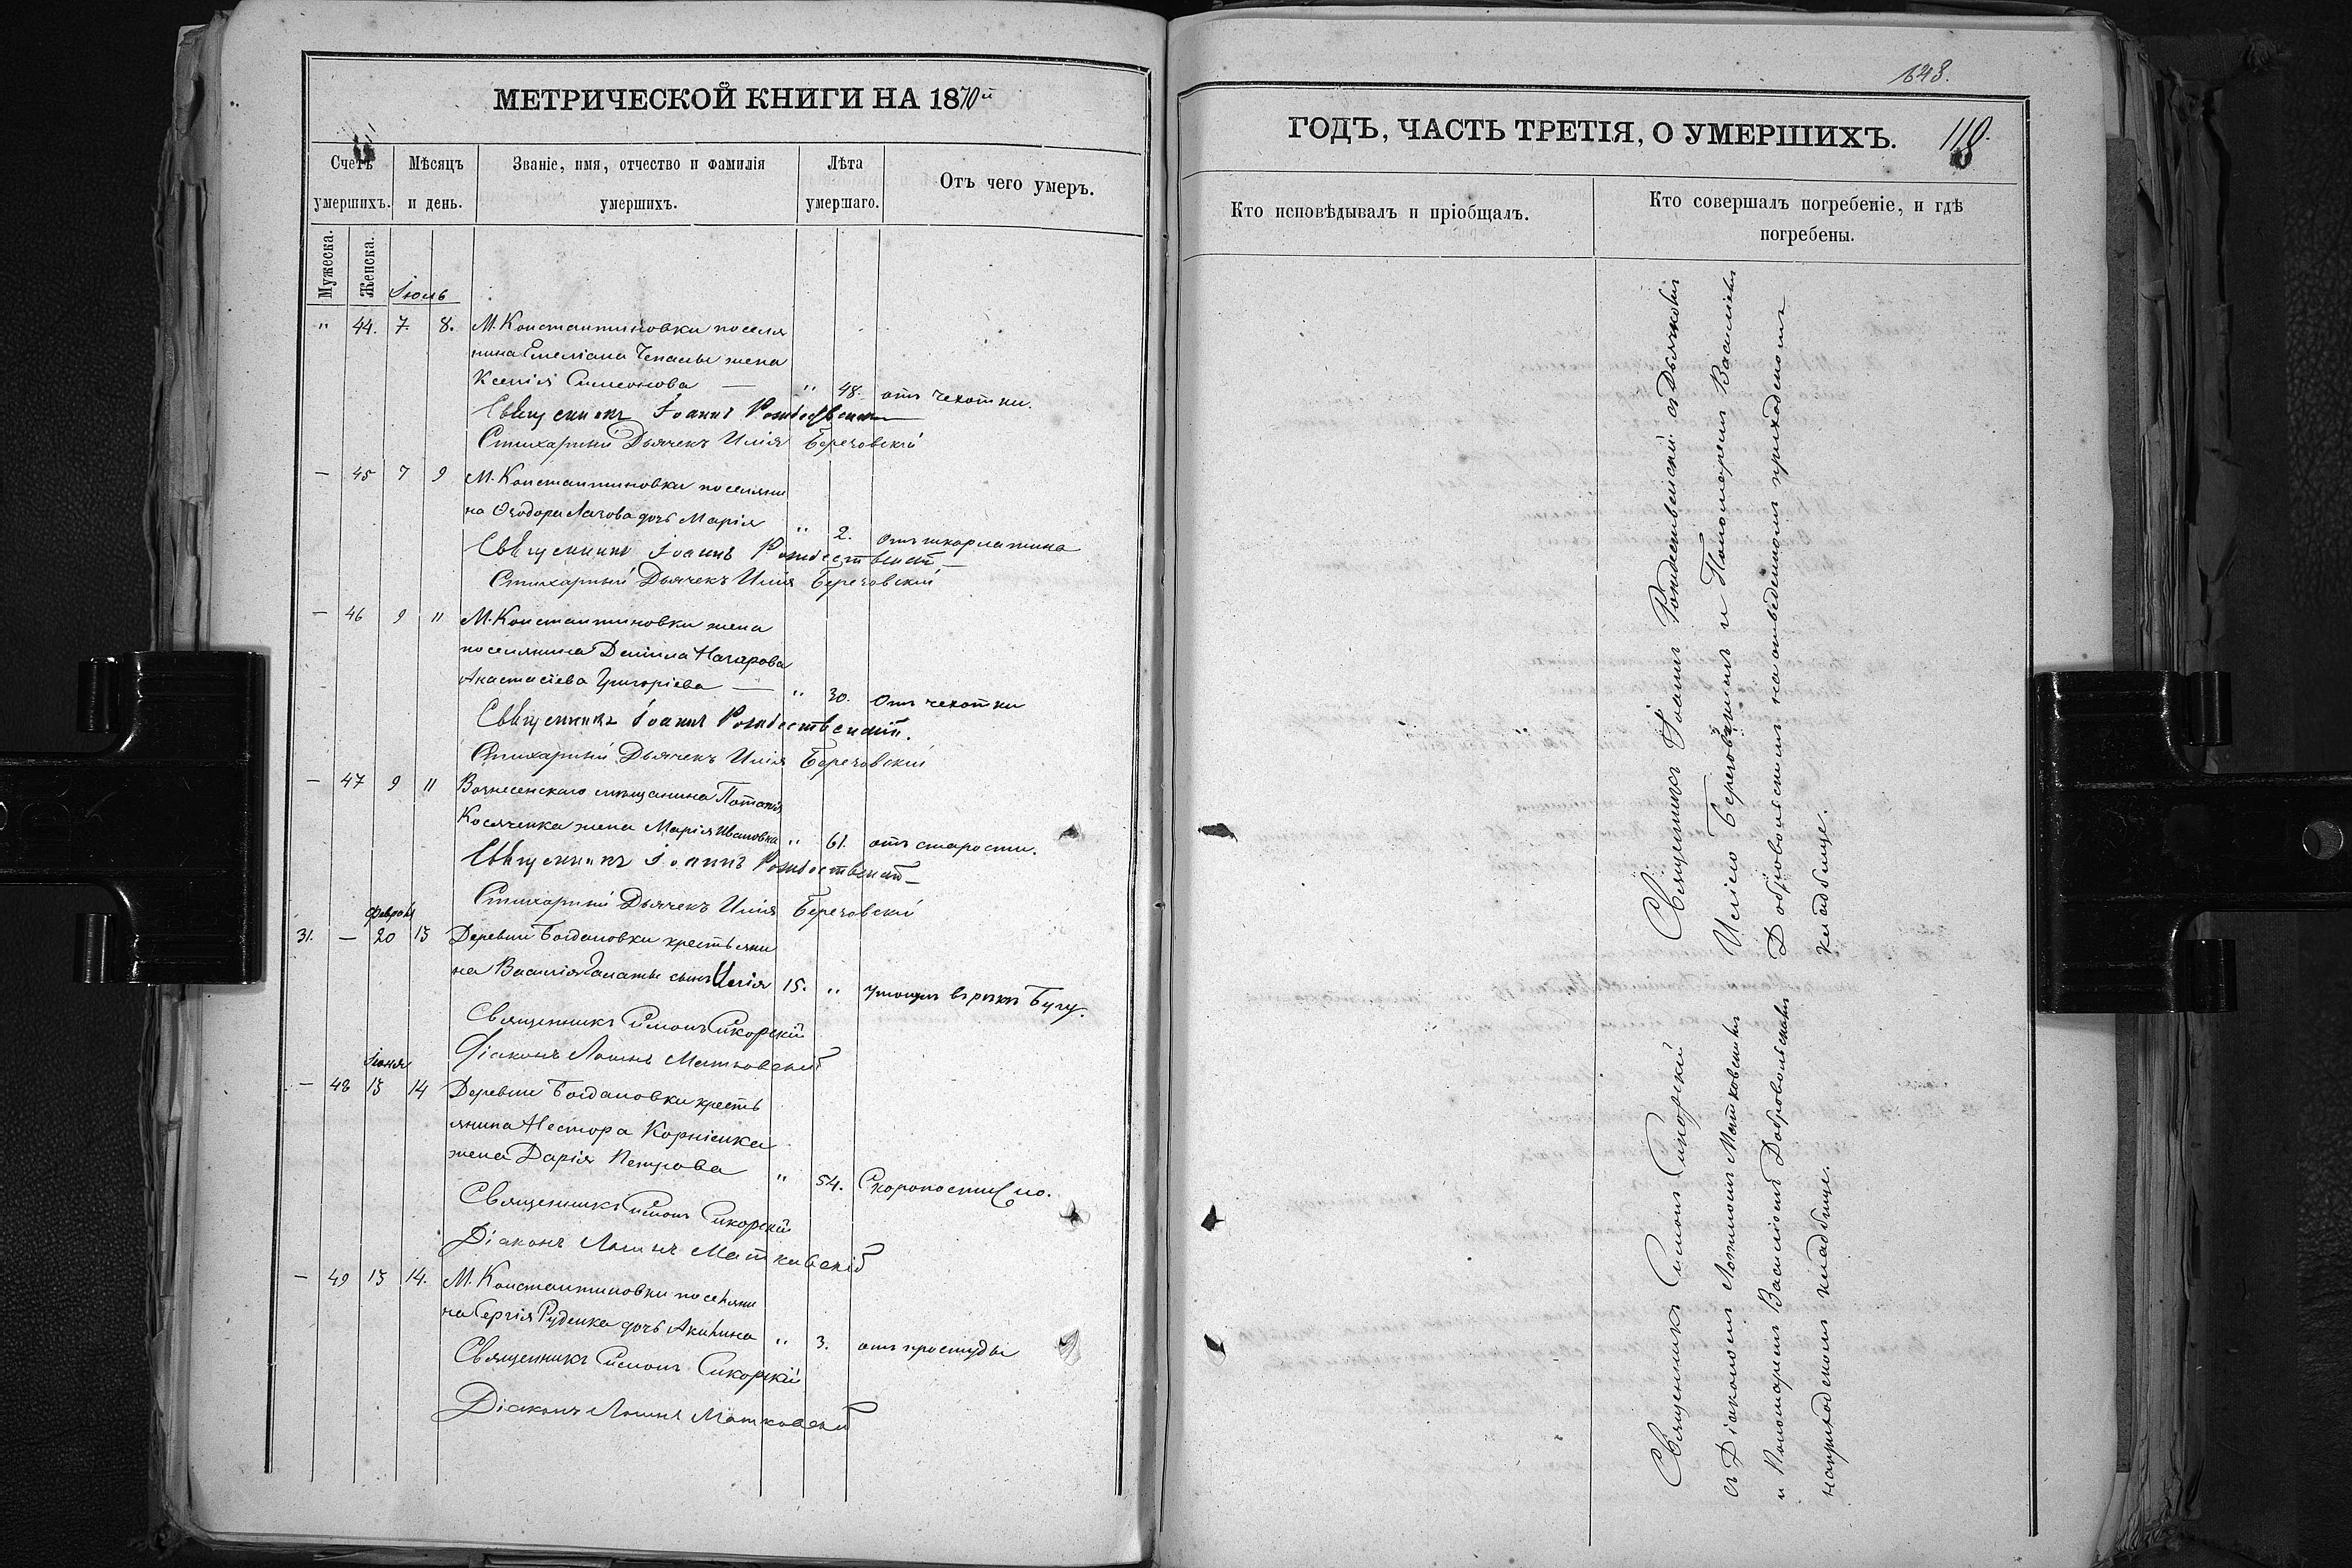 МЕТРИЧЕСКОЙ КНИГИ НА 1870й
Счетъ умершихъ.
Мѣсяцъ и день.
Званіе, имя, отчество и фамилія умершихъ.
Лѣта умершаго.
Отъ чего умеръ.
Мужеска.
Женска.
Іюль
" 44. 7. 8. М. Константиновки поселя
нина Емеліана Чепалы жена
Ксенія Симеонова — " 48. отъ чехотки.
Священникъ Іоаннъ Рождественскій
Стихарный Дьячекъ Илія Березовскій
— 45 7 9 М. Константиновки поселяни
на Ѳеодора Лагова дочь Марія " 2. отъ шкарлатина
Священникъ Іоаннъ Рождественскій
Стихарный Дьячекъ Илія Березовскій
— 46 9 11 М. Константиновки жена
поселянина Данила Назарова
Анастасіева Григоріева — " 30. отъ чехотки
Священникъ Іоаннъ Рождественскій.
Стихарный Дьячекъ Илія Березовскій
— 47 9 11 Вознесенскаго мѣщанина Потапія
Косяченка жена Марія Ивановна " 61. отъ старости.
Священникъ Іоаннъ Рождественскій
Стихарный Дьячекъ Илія Березовскій
Февраля
31. — 20 13 Деревни Богдановки крестьяни
на Василія Галаты сынъ Илія 15. " утонулъ въ рѣкѣ Бугу.
Священникъ Симонъ Сикорскій
Діаконъ Логинъ Матковскій
Іюня
— 48 13 14 Деревни Богдановки кресть
янина Нестора Корніенка
жена Дарія Петрова " 54. Скоропостижно.
Священникъ Симонъ Сикорскій
Діаконъ Логинъ Матковскій
— 49 13 14. М. Константиновки поселяни
на Сергія Руденка дочь Акилина " 3. отъ простуды
Священникъ Симонъ Сикорскій
Діаконъ Логинъ Матковскій
643.
ГОДЪ, ЧАСТЬ ТРЕТІЯ, О УМЕРШИХЪ.
110.
Кто исповѣдывалъ и пріобщалъ.
Кто совершалъ погребеніе, и гдѣ
погребены.
Священникъ Іоаннъ Рождественскій съ Дьячкомъ
Иліею Березовскимъ и Пономаремъ Василіемъ
Добровольскимъ на отведенномъ приходскомъ
кладбище.
Священникъ Симонъ Сикорскій
съ Діакономъ Логиномъ Матковскимъ
и Пономаремъ Василіемъ Добровольскимъ
на приходскомъ кладбище.